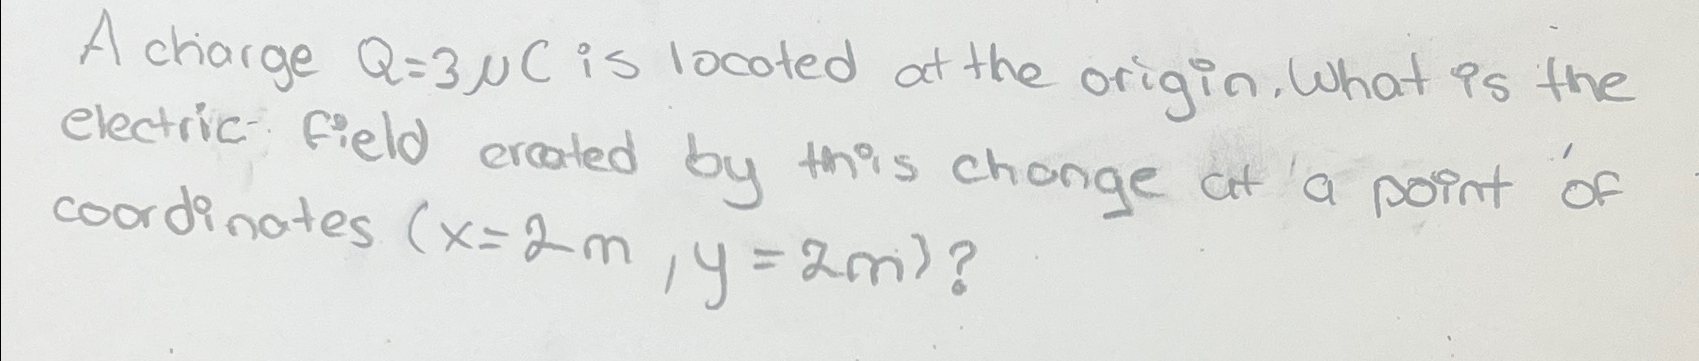 A charge Q=3μC is located at the origin. What is the
electric field created by this change at a point of
coordinates (x=2m, y=2m)?